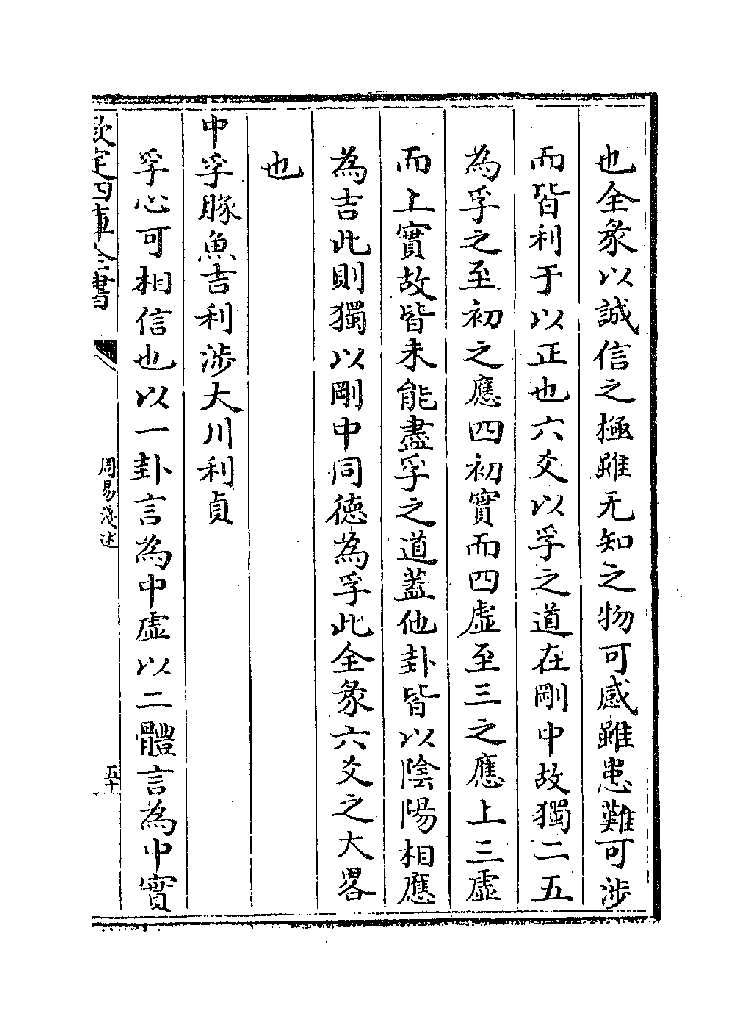 也全彖以誠信之極雖无知之物可感雖患難可涉
而皆利于以正也六爻以孚之道在剛中故獨二五
為孚之至初之應四初實而四虛至三之應上三虛
而上實故皆未能盡孚之道蓋他卦皆以陰陽相應
為吉此則獨以剛中同德為孚此全彖六爻之大畧
也
中孚豚魚吉利涉大川利貞
孚心可相信也以一卦言為中虛以二體言為中實
欽定四庫全書
周易淺述
五十